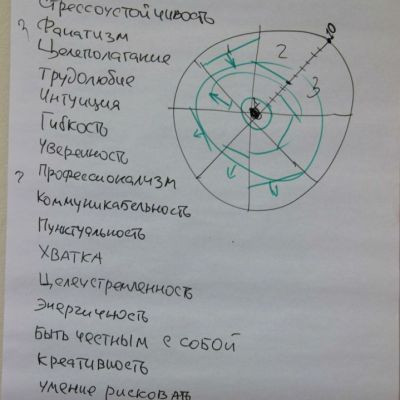 Стрессоустойчивость
? Фанатизм
Целеполагание
Трудолюбие
Интуиция
Гибкость
Уверенность
? Профессионализм
Коммуникабельность
Пунктуальность
ХВАТКА
Целеустремленность
Энергичность
Быть честным с собой
Креативность
Умение рисковать
10
2
3